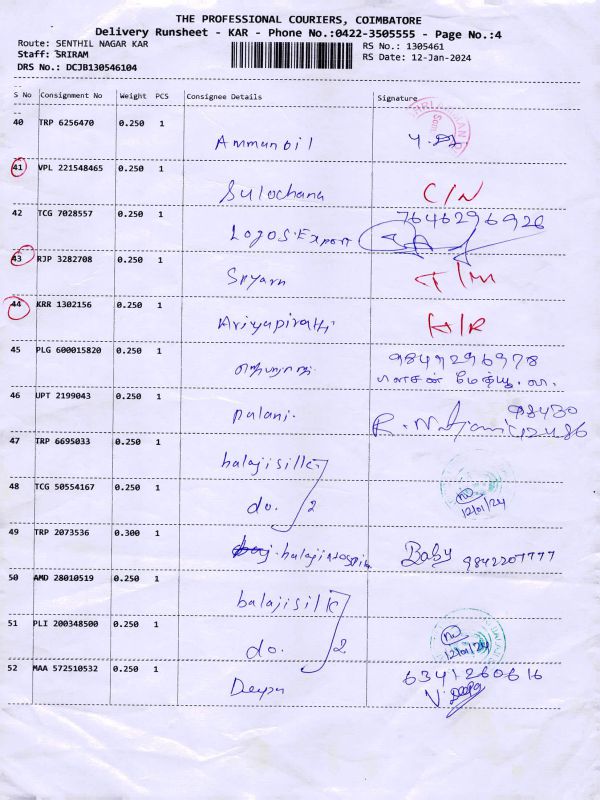 THE PROFESSIONAL COURIERS, COIMBATORE
Delivery Runsheet - KAR - Phone No.:0422-3505555 - Page No.:4
Route: SENTHIL NAGAR KAR
Staff: SRIRAM
DRS No.: DCJB130546104
RS No.: 1305461
RS Date: 12-Jan-2024
S No Consignment No Weight PCS Consignee Details Signature
40 TRP 6256470 0.250 1
Ammunoil
41 VPL 221548465 0.250 1
Sulochana C/N
42 TCG 7028557 0.250 1 7646296926
Logos. Export
43 RJP 3282708 0.250 1
Sryarn T/M
44 KRR 1302156 0.250 1
Ariyapirathi H/R
45 PLG 600015820 0.250 1 9849296978
46 UPT 2199043 0.250 1 98430
palani. R.
47 TRP 6695033 0.250 1
balajisilk
48 TCG 50554167 0.250 1
do. 2 12/01/24
49 TRP 2073536 0.300 1
balaji Baby 9842207777
50 AMD 28010519 0.250 1
balajisilk
51 PLI 200348500 0.250 1
do. 2 12/01/24
52 MAA 572510532 0.250 1 6341260616
Deepa V. Deepa